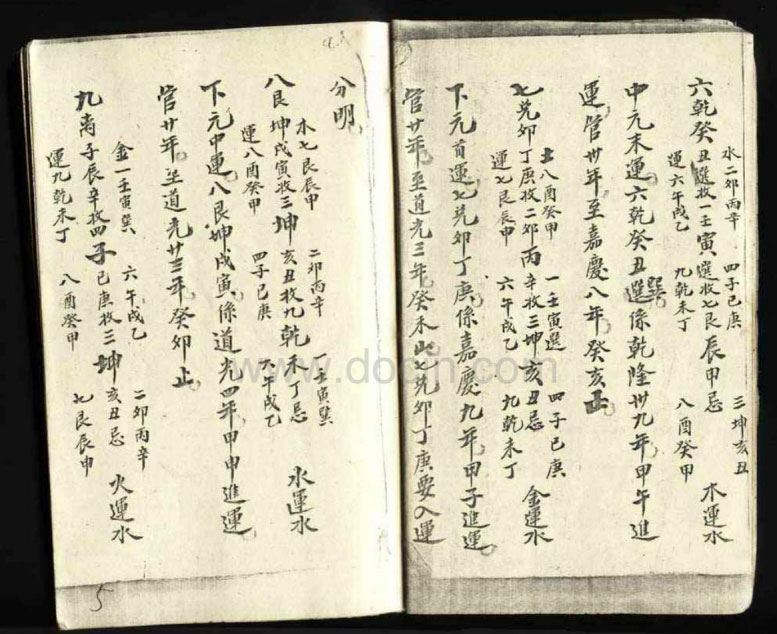 水二卯丙辛 四子己庚 三坤亥丑
六乾癸丑選收一壬寅選收七艮辰甲忌 木運水
運六午戌乙 九乾未丁 八酉癸甲
中元末運六乾癸丑巽係乾隆卅九年甲午進
運管卅年至嘉慶八年癸亥止
土八酉癸甲 一壬寅選 四子己庚
七兌卯丁庚收二卯丙辛收三坤亥丑忌 金運水
運七艮辰申 六午戌乙 九乾未丁
下元首運七兌卯丁庚係嘉慶九年甲子進運
管廿年至道光三年癸未止七兌卯丁庚要入運
分明
木七艮辰申 二卯丙辛 一壬寅巽
八艮坤戌寅收三坤亥丑收九乾未丁忌 水運水
運八酉癸甲 四子己庚 六午戌乙
下元中運八艮坤戌寅係道光四年甲申進運
管廿年至道光廿三年癸卯止
金一壬寅巽 六午戌乙 二卯丙辛
九离子辰辛收四子己庚收三坤亥丑忌 火運水
運九乾未丁 八酉癸甲 七艮辰申
5
www.docin.com